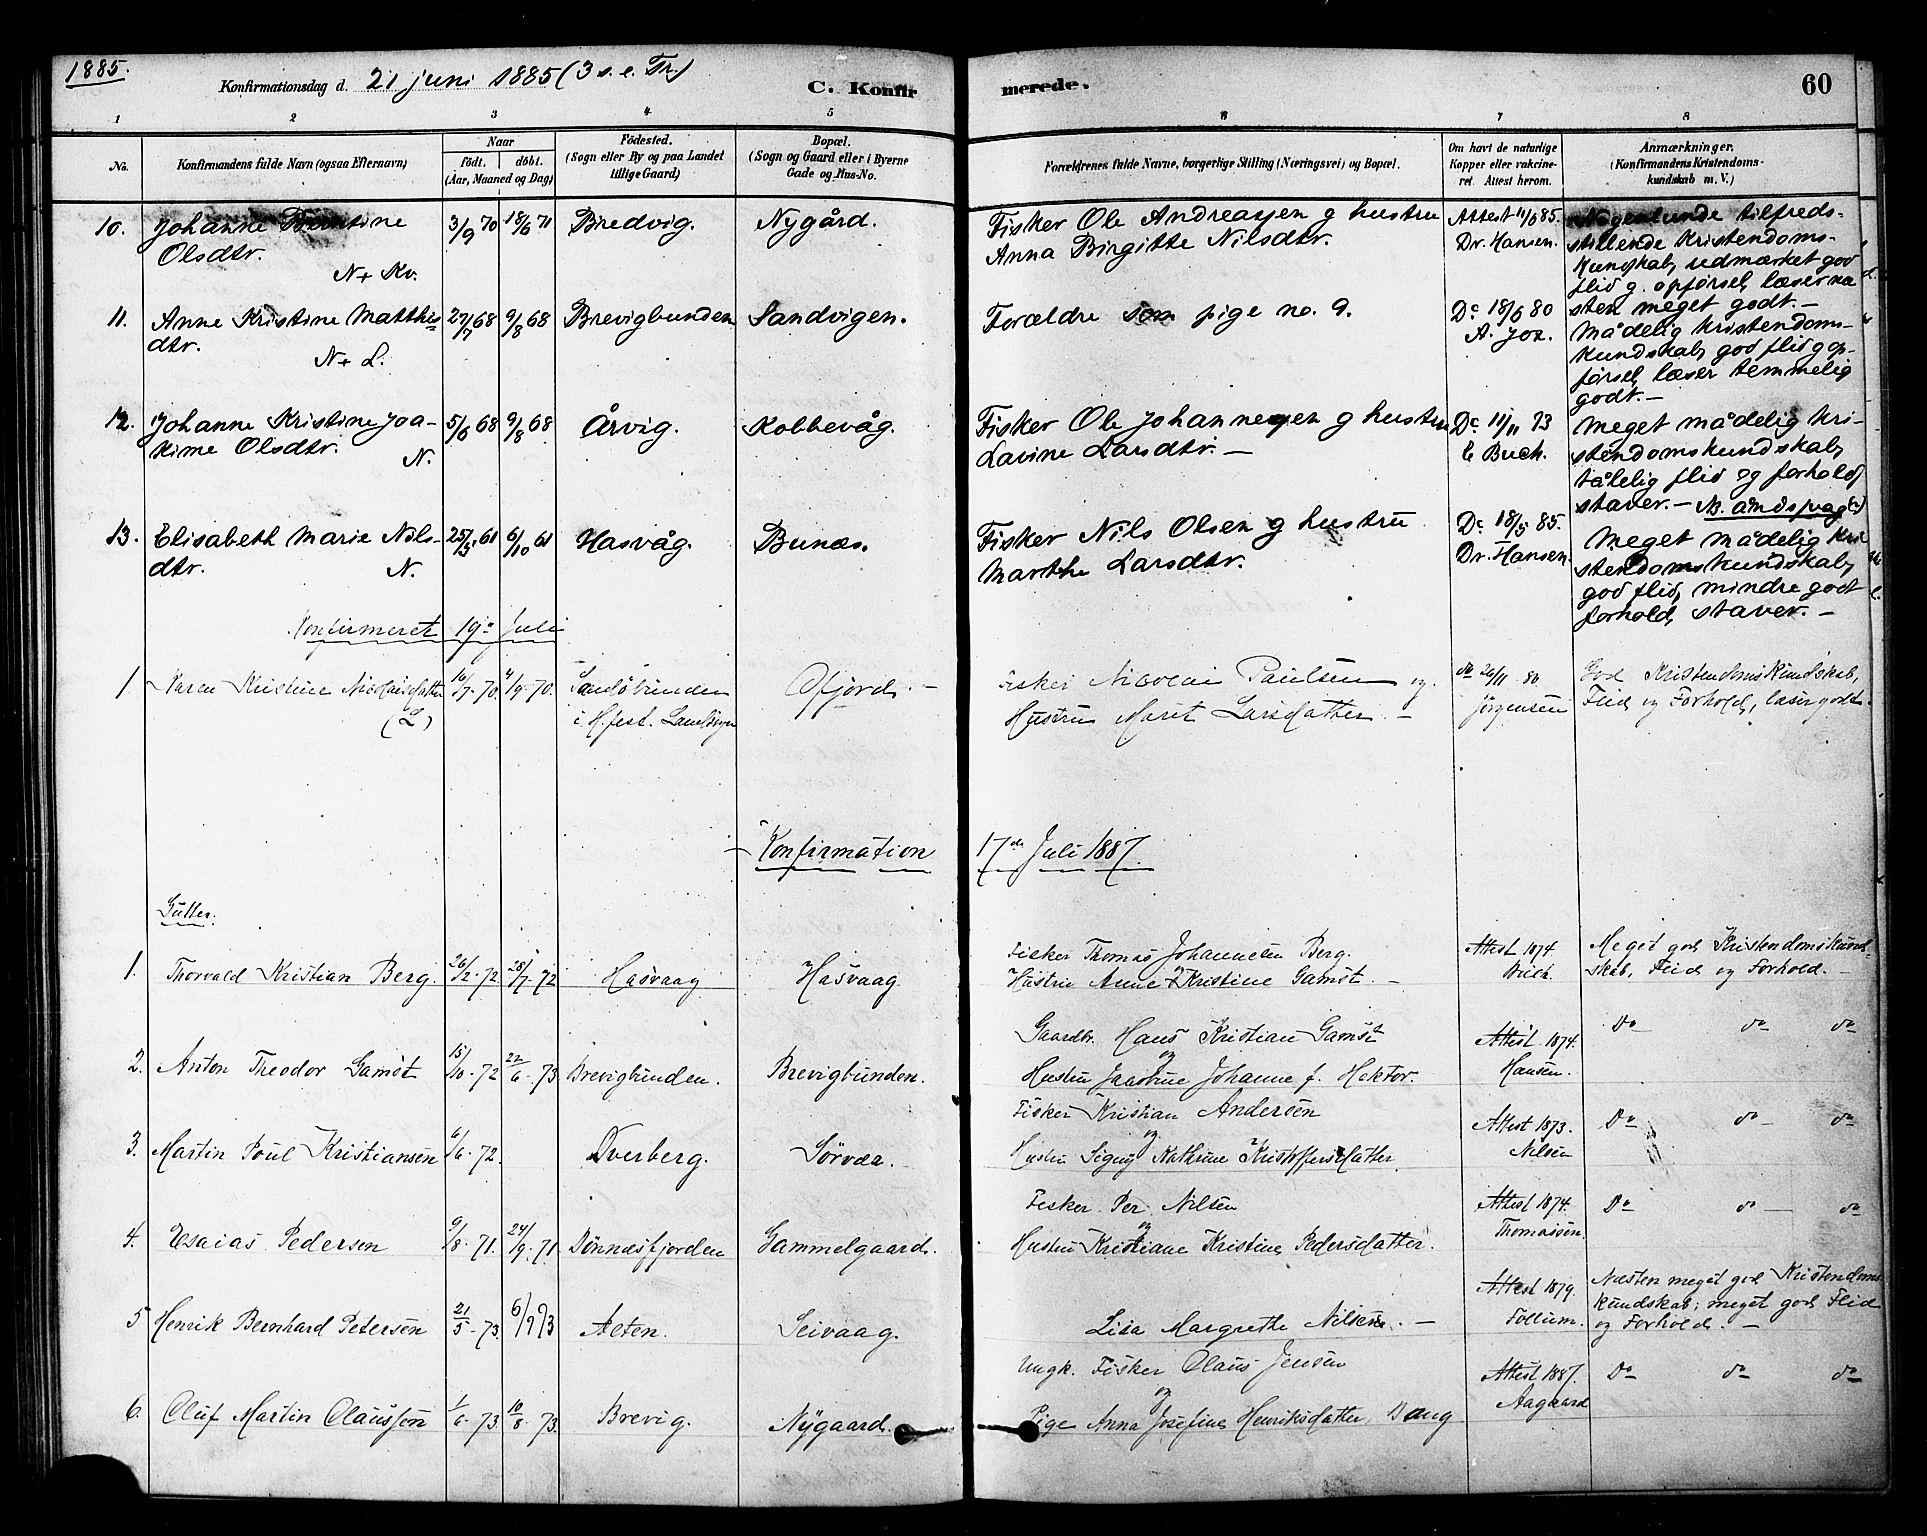 1885.
Konfirmationsdag d. 21 juni 1885 (3 s. e. Tr.)
C. Konfir
merede.
60
1 2 3 4 5 6 7 8
No.
Konfirmandens fulde Navn (ogsaa Efternavn)
Naar
født. døbt.
(Aar, Maaned og Dag)
Födested.
(Sogn eller By og paa Landet
tillige Gaard)
Bopæl.
(Sogn og Gaard eller i Byerne
Gade og Hus-No.
Forældrenes fulde Navne, borgerlige Stilling (Næringsvei) og Bopæl.
Om havt de naturlige
Kopper eller vakcine-
ret. Attest herom.
Anmærkninger.
(Konfirmandens Kristendoms-
kundskab m. V.)
10. Johanne Berntine 3/9 70 18/6 71 Bredvig. Nygård. Fisker Ole Andreassen g hustru Attest 11/6 85. Nogenlunde tilfreds-
Olsdtr. Anna Birgitte Nilsdtr. Dr. Hansen. stillende Kristendoms-
N + Kv. Kundskab, udmærket god
flid g. opførsel, læser næ
11. Anne Kristine Matthis 27/7 68 9/8 68 Brevigbunden Sandvigen. Forældre som pige no. 9. Do 18/6 80 sten meget godt. —
dtr. A. Jox. Mådelig Kristendoms-
N + L. kundskab, god flid g op-
førsel, læser temmelig
godt. —
12. Johanne Kristine Joa- 5/6 68 9/8 68 Årvig. Kobbevåg. Fisker Ole Johannesen g hustru Do 11/11 73 Meget mådelig kri-
kime Olsdtr. N. Lavine Larsdtr. — E Buch. stendomskundskab,
tålelig flid og forhold,
staver. — NB. åndsvag(?)
13. Elisabeth Marie Nils- 25/5 61 6/10 61 Hasvåg. Bunæs. Fisker Nils Olsen g hustru Do 18/5 85. Meget mådelig kri
dtr. N. Marthe Larsdtr. Dr. Hansen. stendomskundskab,
god flid, mindre godt
forhold, staver. —
Konfirmeret 19de Juli
1. Karen Kristine Nicolaisdatter 16/7 - 70. 4/9 - 70. Sandøbunden Øfjord. — Fisker Nicolai Paulsen og do 26/11 - 80 God Kristendomskundskab,
(L) i Hfest. Landsogn Hustru Marit Larsdatter. — Jörgensen Flid og Forhold, læser godt.
Konfirmation 17de Juli 1887.
Gutter.
1. Thorvald Kristian Berg. 26/2 - 72 28/7 - 72 Hasvaag Hasvaag Fisker Thomas Johannesen Berg. Attest 1874 Meget god Kristendomskund-
Hustru Anne Kristine Gamst. — Buch. skab, Flid og Forhold. —
2. Anton Theodor Gamst 15/10 - 72 22/6 - 73 Brevigbunden. Brevigbunden. Gaardbr. Hans Kristian Gamst Attest 1874. Do do do
og
Hustru Jacobine Johanne f. Hektor. Hansen.
3. Martin Poul Kristiansen 6/6 - 72. Dverberg. Sörvær. Fisker Kristian Andersen Attest 1873. Do do — do
og
Hustru Signy Kathrine Kristoffersdatter. Nilsen
4. Esaias Pedersen 9/8 - 71. 24/9 - 71 Dönnæsfjorden Gammelgaard. Fisker Per Nilsen Attest 1874. Do do — do
og
Hustru Kristiane Kristine Pedersdatter. Thomassen.
5 Henrik Bernhard Petersen 21/5 - 73. 6/7 73 Alten. Seivaag. Lisa Margrethe Nilsen. — Attest 1879. Næsten meget god Kristendoms
Follum. kundskab; meget god Flid
og Forhold. —
6. Oluf Martin Claussen 1/6 - 73. 10/8 - 73. Brevig. Nygaard. Ungk. Fisker Claus Jensen Attest 1887. Do do do
og
Pige Anna Josefine Henriksdatter Bang Aagaard